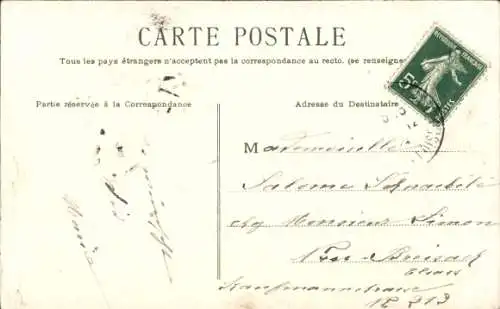 CARTE POSTALE
Tous les pays étrangers n'acceptent pas la correspondance au recto. (se renseigne
Partie réservée à la Correspondance
Adresse du Destinataire
REPUBLIQUE FRANÇAISE
5c
POSTES
Mademoiselle
Salome
chez Monsieur Simon
Neu-Breisach
Elsass
Kaufmannstrasse
12 213
Marie